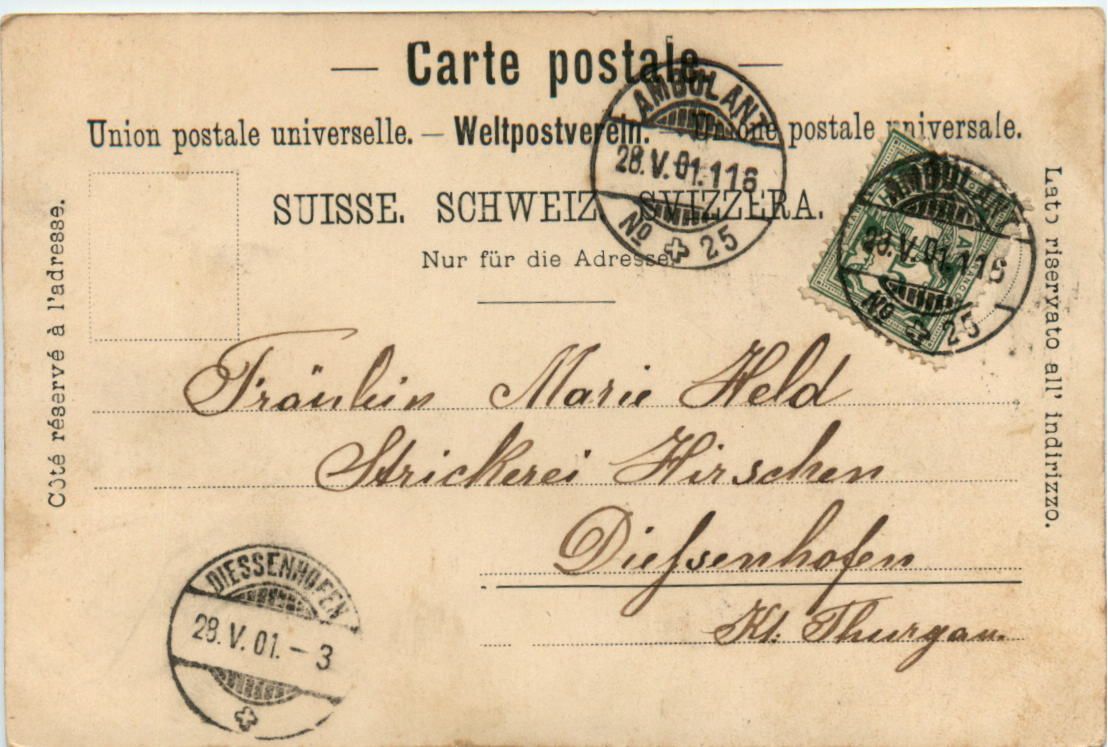 — Carte postale. —
Union postale universelle. — Weltpostverein. — Unione postale universale.
SUISSE. SCHWEIZ. SVIZZERA.
Nur für die Adresse.
Côté réservé à l'adresse.
Lato riservato all' indirizzo.
AMBULANT
28.V.01.116
No 25
AMBULANT
28.V.01.116
No 25
Fräulein Marie Held
Strickerei Hirschen
Dießenhofen
Kt. Thurgau.
DIESSENHOFEN
28.V.01.–3